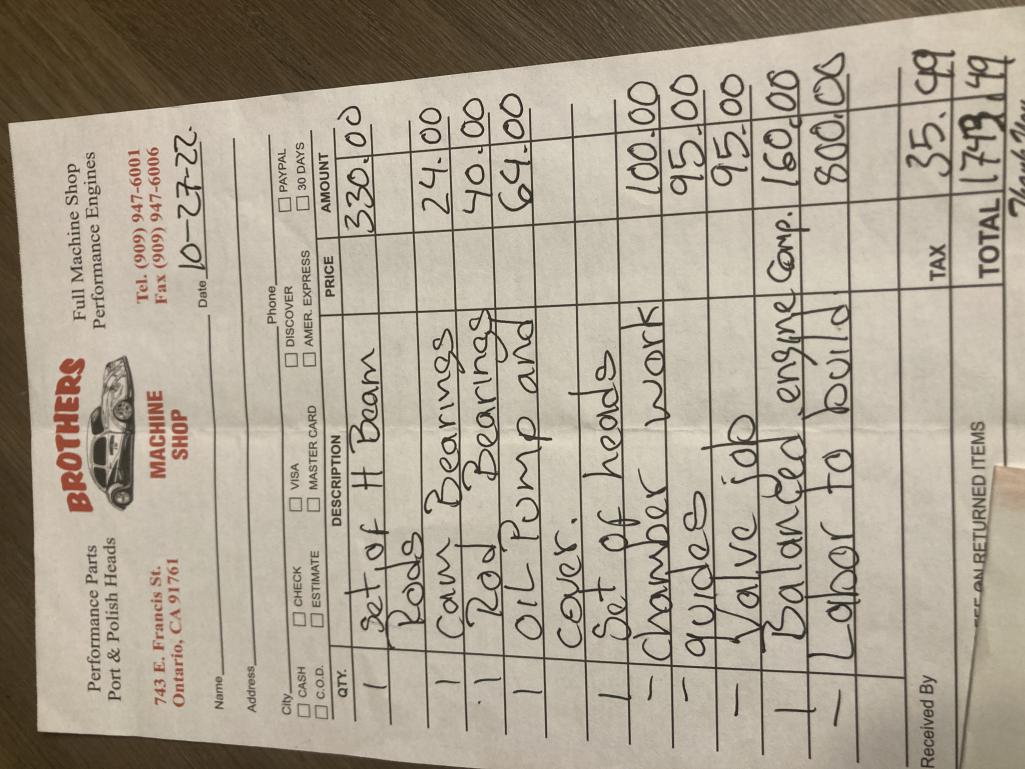 Performance Parts
Port & Polish Heads
BROTHERS
MACHINE
SHOP
Full Machine Shop
Performance Engines
743 E. Francis St.
Ontario, CA 91761
Tel. (909) 947-6001
Fax (909) 947-6006
Name Date 10-27-22.
Address
City Phone
CASH CHECK VISA DISCOVER PAYPAL
C.O.D. ESTIMATE MASTER CARD AMER. EXPRESS 30 DAYS
QTY. DESCRIPTION PRICE AMOUNT
1 Set of H Beam 330.00
Rods
1 Cam Bearings 24.00
1 Rod Bearings 40.00
1 OIL Pump and 64.00
cover.
1 Set of heads
- Chamber work 100.00
- guides 95.00
- Valve job 95.00
1 Balanced engine Comp. 160.00
- Labor to build. 800.00
TAX 35.49
Received By TOTAL 1743.49
ON RETURNED ITEMS